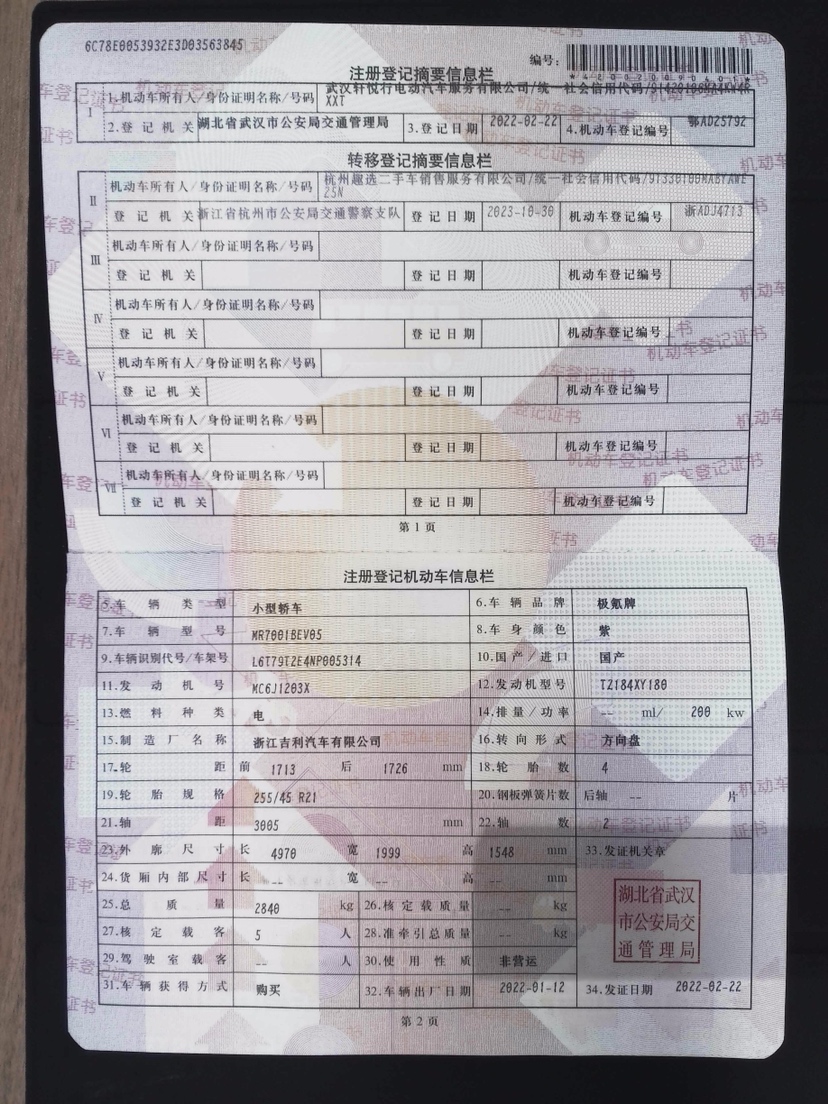 6C78E0053932E3D03563845
编号:
注册登记摘要信息栏
I 1.机动车所有人/身份证明名称/号码 武汉轩悦行电动汽车服务有限公司/统一社会信用代码/
XXT
2.登记机关 湖北省武汉市公安局交通管理局 3.登记日期 2022-02-22 4.机动车登记编号 鄂AD25792
转移登记摘要信息栏
II 机动车所有人/身份证明名称/号码 杭州趣选二手车销售服务有限公司/统一社会信用代码/91330100MABYAWE
25N
登记机关 浙江省杭州市公安局交通警察支队 登记日期 2023-10-30 机动车登记编号 浙ADJ4713
III 机动车所有人/身份证明名称/号码
登记机关 登记日期 机动车登记编号
IV 机动车所有人/身份证明名称/号码
登记机关 登记日期 机动车登记编号
V 机动车所有人/身份证明名称/号码
登记机关 登记日期 机动车登记编号
VI 机动车所有人/身份证明名称/号码
登记机关 登记日期 机动车登记编号
VII 机动车所有人/身份证明名称/号码
登记机关 登记日期 机动车登记编号
第1页
注册登记机动车信息栏
5.车辆类型 小型轿车 6.车辆品牌 极氪牌
7.车辆型号 MR7001BEV05 8.车身颜色 紫
9.车辆识别代号/车架号 L6T79T2E4NP005314 10.国产/进口 国产
11.发动机号 MC6J1203X 12.发动机型号 TZ184XY180
13.燃料种类 电 14.排量/功率 -- ml/ 200 kw
15.制造厂名称 浙江吉利汽车有限公司 16.转向形式 方向盘
17.轮距 前 1713 后 1726 mm 18.轮胎数 4
19.轮胎规格 255/45 R21 20.钢板弹簧片数 后轴 -- 片
21.轴距 3005 mm 22.轴数 2
23.外廓尺寸 长 4970 宽 1999 高 1548 mm 33.发证机关章
24.货厢内部尺寸 长 -- 宽 -- 高 -- mm
25.总质量 2840 kg 26.核定载质量 -- kg
27.核定载客 5 人 28.准牵引总质量 -- kg
湖北省武汉
市公安局交
通管理局
29.驾驶室载客 -- 人 30.使用性质 非营运
31.车辆获得方式 购买 32.车辆出厂日期 2022-01-12 34.发证日期 2022-02-22
第2页